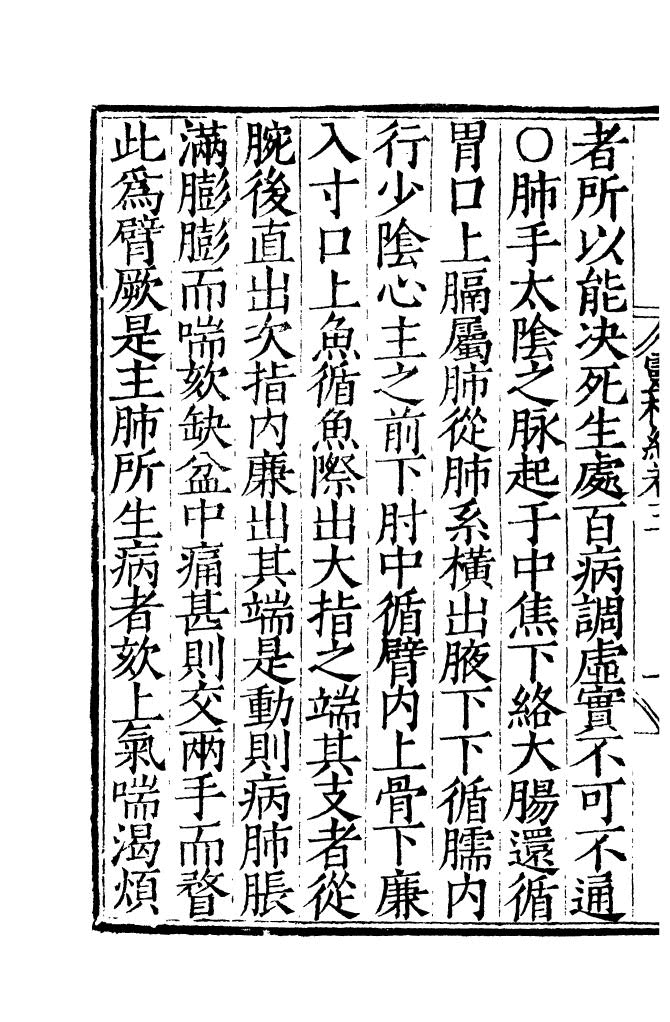 者所以能决死生處百病調虛實不可不通
○肺手太陰之脉起于中焦下絡大腸還循
胃口上膈屬肺從肺系橫出腋下下循臑内
行少陰心主之前下肘中循臂内上骨下廉
入寸口上魚循魚際出大指之端其支者從
腕後直出次指内廉出其端是動則病肺脹
滿膨膨而喘欬缺盆中痛甚則交兩手而瞀
此爲臂厥是主肺所生病者欬上氣喘渴煩